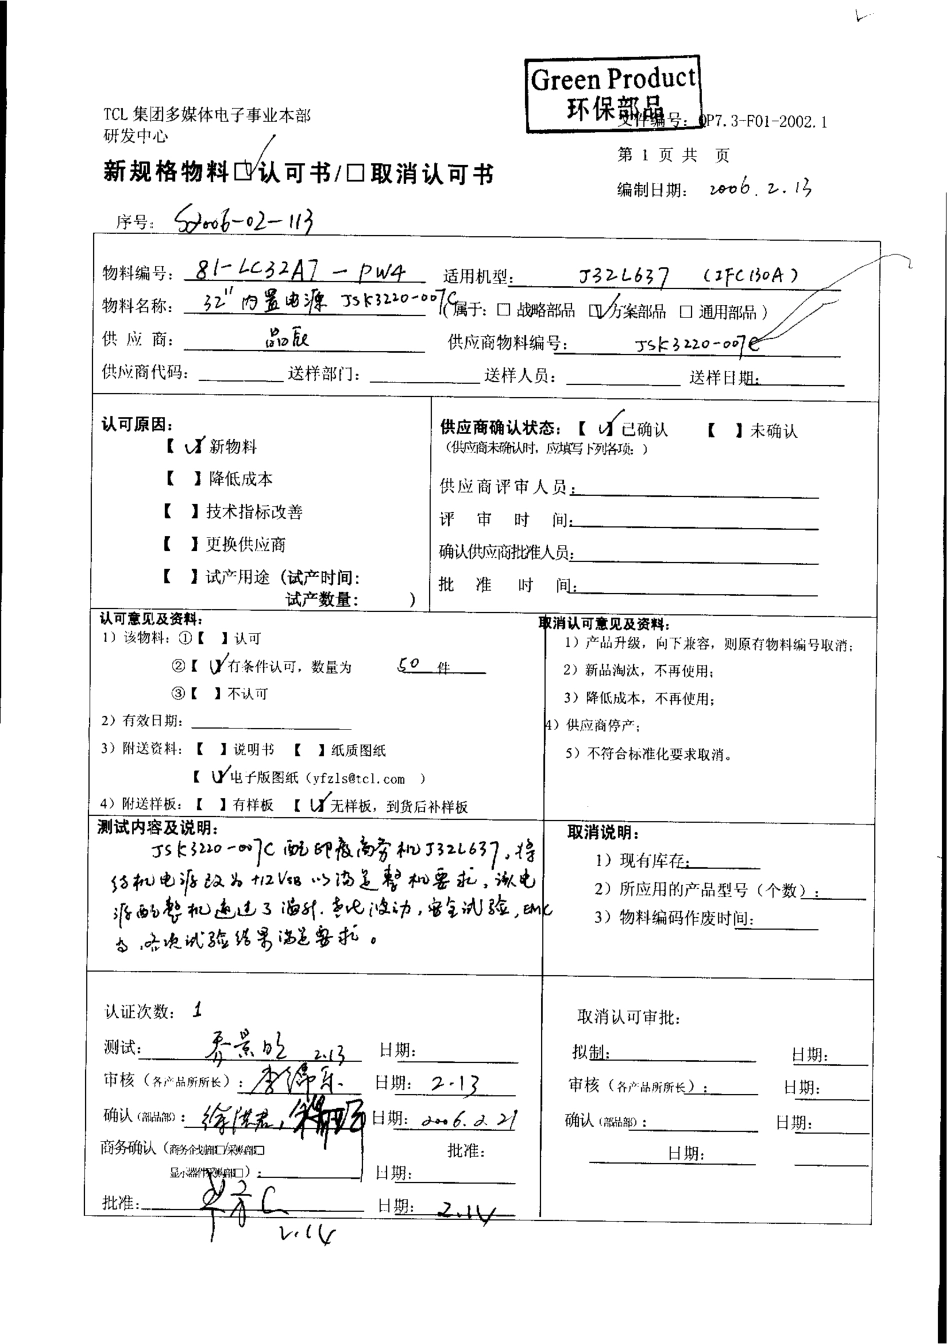 Green Product
环保部品
TCL 集团多媒体电子事业本部
文件编号: QP7.3-F01-2002.1
研发中心
第 1 页 共 页
新规格物料☑认可书/□取消认可书
编制日期: 2006.2.13
序号: S2006-02-113
物料编号: 81-LC32A7-PW4 适用机型: J32L637 (IFC130A)
物料名称: 32" 内置电源 JSK3220-007C (属于: □ 战略部品 ☑ 方案部品 □ 通用部品 )
供 应 商: 供应商物料编号: JSK3220-007C
供应商代码: 送样部门: 送样人员: 送样日期:
认可原因:
【√】新物料
【 】降低成本
【 】技术指标改善
【 】更换供应商
【 】试产用途 (试产时间:
试产数量: )
供应商确认状态: 【√】已确认 【 】未确认
(供应商未确认时, 应填写下列各项: )
供应商评审人员:
评 审 时 间:
确认供应商批准人员:
批 准 时 间:
认可意见及资料:
1) 该物料: ①【 】认可
②【√】有条件认可, 数量为 50 件
③【 】不认可
2) 有效日期:
3) 附送资料: 【 】说明书 【 】纸质图纸
【√】电子版图纸 (yfzls@tcl.com )
4) 附送样板: 【 】有样板 【√】无样板, 到货后补样板
取消认可意见及资料:
1) 产品升级, 向下兼容, 则原有物料编号取消;
2) 新品淘汰, 不再使用;
3) 降低成本, 不再使用;
4) 供应商停产;
5) 不符合标准化要求取消。
测试内容及说明:
JSK3220-007C 配印度商务机J32L637, 将
待机电源改为+12VSB 以满足整机要求, 该电
源配整机通过了温升, 波动, 安全试验, EMC
各次试验结果满足要求。
取消说明:
1) 现有库存:
2) 所应用的产品型号 (个数) :
3) 物料编码作废时间:
认证次数: 1
测试: 2.13 日期:
审核 (各产品所所长) : 日期: 2-13
确认 (部品部) : 日期: 2006.2.21
商务确认 (商务企划部□/采购部□ 批准:
显示器件采购部□) : 日期:
批准: 2.14 日期: 2.14
取消认可审批:
拟制: 日期:
审核 (各产品所所长) : 日期:
确认 (部品部) : 日期:
日期: